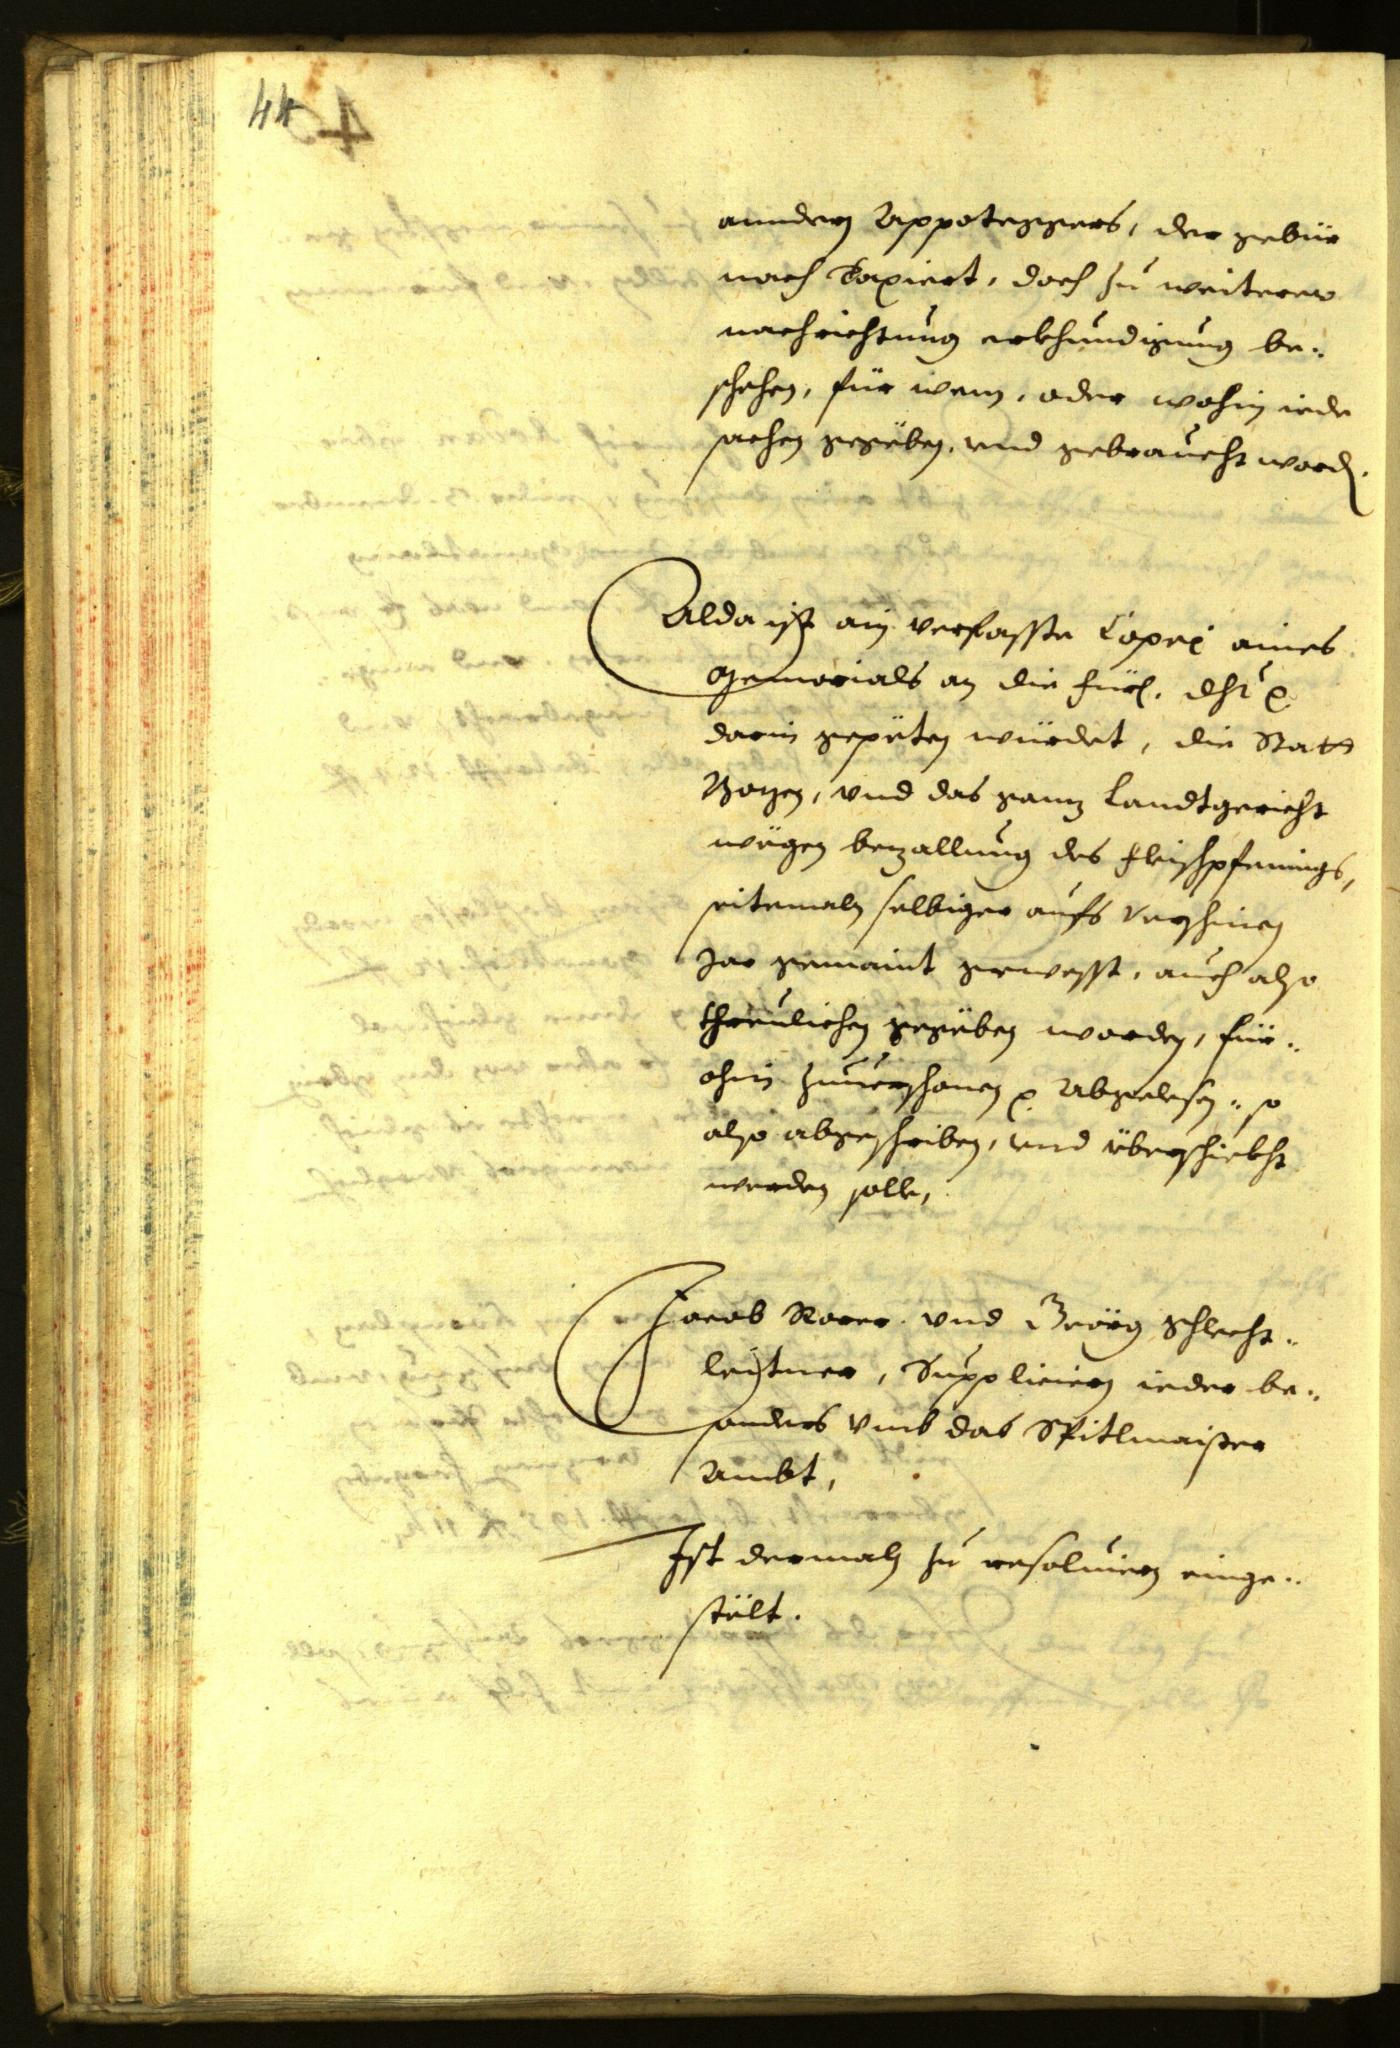 44
anndern Appoteggers, der gebür
nach Taxiert, doch zu weiterer
nachrichtung erkhundigung be¬
schehen, für wem, oder wohin iede
sachen gegeben, und gebraucht word.
Alda ist ain verfasste Copei aines
Memorials an die
darin gepeten würdet, die Statt
Bozen, vnd das ganz Landtgericht
wegen bezallung des Fleischpfenings,
seitemaln selbiger aufs verschinen
Jar gemaint gewesst, auch also
threulichen gegeben worden, für¬
ohin zuuerschonen Abgelesen, so
also abgeschriben, vnd überschickht
werden solle,
Jacob Rorer vnd Geörg Schlecht¬
leitner, Supplicieren ieder be¬
sonders vmb das Spitlmaister
Ambt,
Ist dermaln zu resoluiern einge¬
stelt.